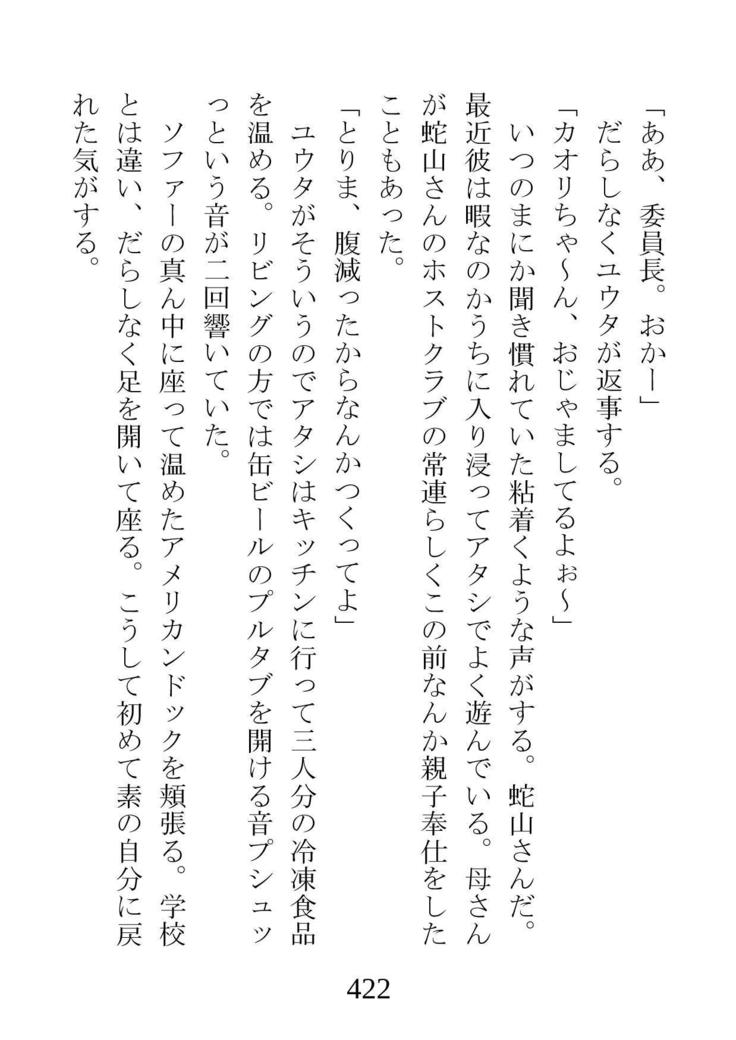 「ああ、委員長。おかー」
だらしなくユウタが返事する。
「カオリちゃ〜ん、おじゃましてるよぉ〜」
いつのまにか聞き慣れていた粘着くような声がする。蛇山さんだ。
最近彼は暇なのかうちに入り浸ってアタシでよく遊んでいる。母さん
が蛇山さんのホストクラブの常連らしくこの前なんか親子奉仕をした
こともあった。
「とりま、腹減ったからなんかつくってよ」
ユウタがそういうのでアタシはキッチンに行って三人分の冷凍食品
を温める。リビングの方では缶ビールのプルタブを開ける音プシュッ
っという音が二回響いていた。
ソファーの真ん中に座って温めたアメリカンドックを頬張る。学校
とは違い、だらしなく足を開いて座る。こうして初めて素の自分に戻
れた気がする。
422